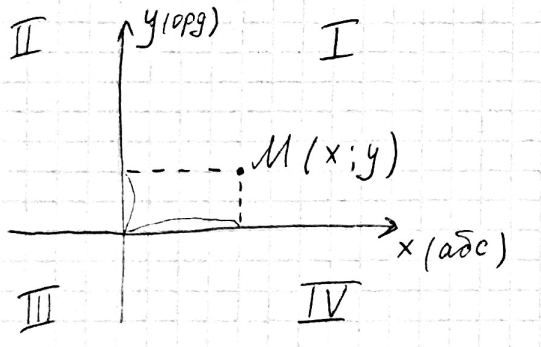 II
y(орд)
I
M(x;y)
x(абс)
III
IV